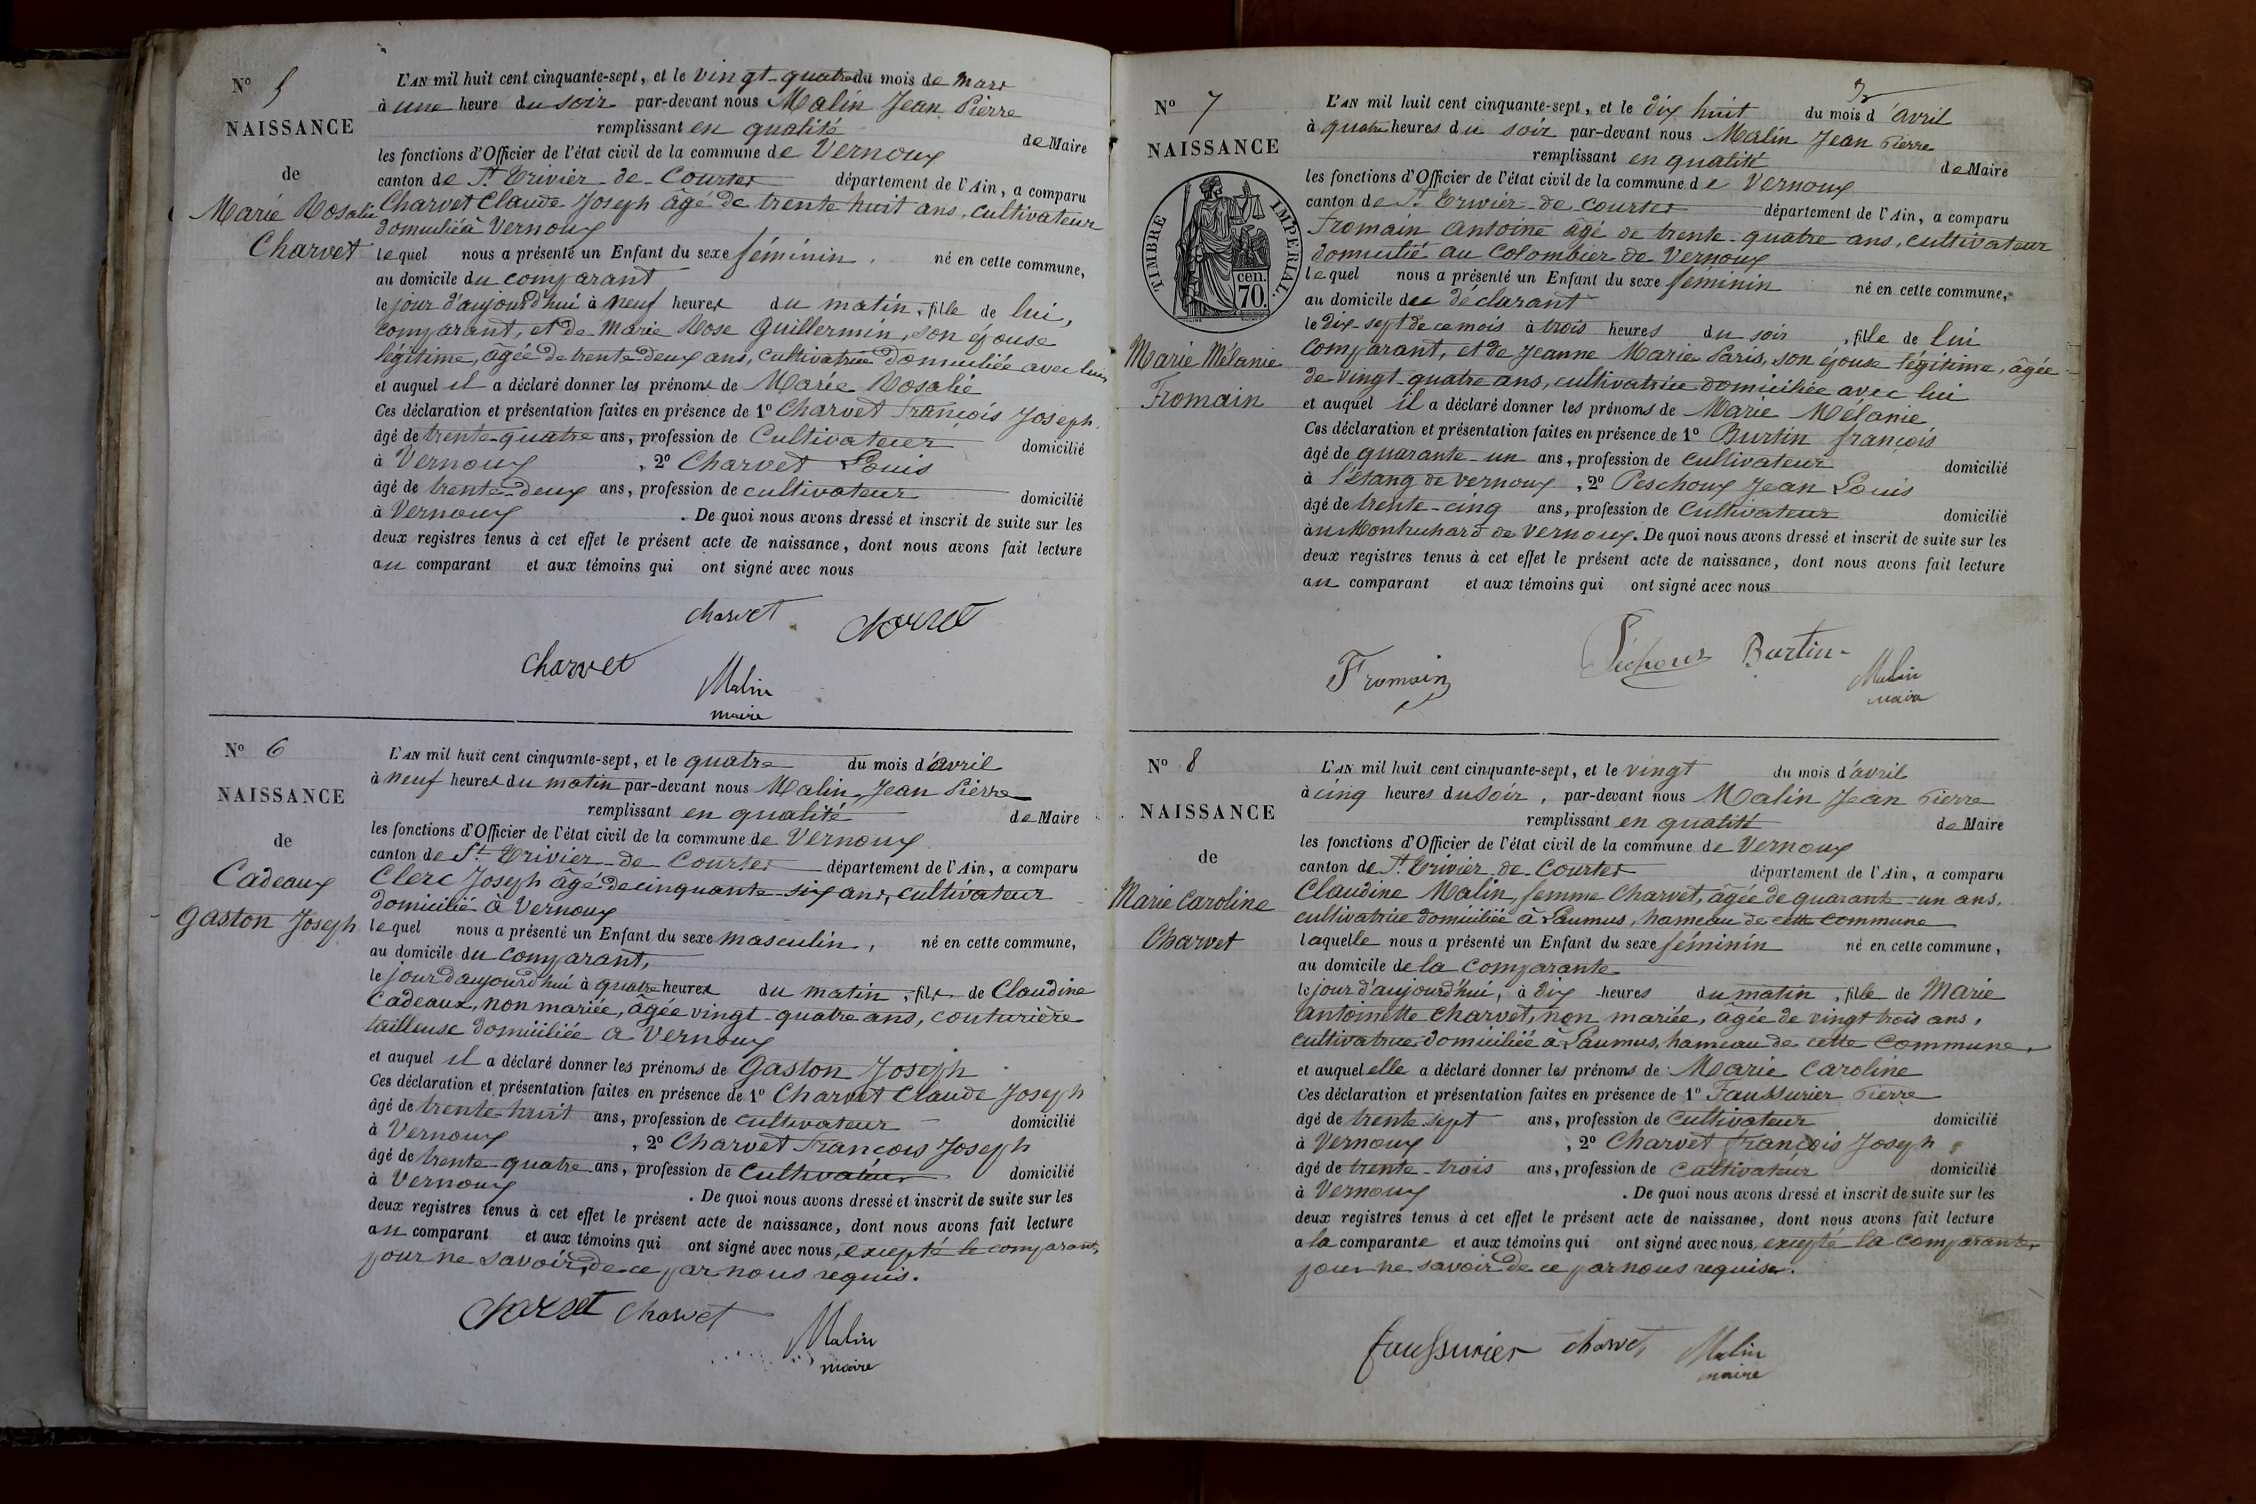 N° 5
NAISSANCE
de
Marie Rosalie
Charvet
L'AN mil huit cent cinquante-sept, et le vingt-quatre du mois de mars
à une heure du soir par-devant nous Malin Jean Pierre
remplissant en qualité de Maire
les fonctions d'Officier de l'état civil de la commune de Vernoux
canton de St Trivier-de-Courtes département de l'Ain, a comparu
Charvet Claude Joseph âgé de trente huit ans, cultivateur
domicilié à Vernoux
lequel nous a présenté un Enfant du sexe féminin, né en cette commune,
au domicile du comparant
le jour d'aujourd'hui à neuf heures du matin, fille de lui,
comparant, et de Marie Rose Guillermin, son épouse
légitime, âgée de trente deux ans, cultivatrice domiciliée avec lui,
et auquel il a déclaré donner les prénoms de Marie Rosalie
Ces déclaration et présentation faites en présence de 1° Charvet François Joseph
âgé de trente-quatre ans, profession de Cultivateur domicilié
à Vernoux, 2° Charvet Louis
âgé de trente-deux ans, profession de cultivateur domicilié
à Vernoux. De quoi nous avons dressé et inscrit de suite sur les
deux registres tenus à cet effet le présent acte de naissance, dont nous avons fait lecture
au comparant et aux témoins qui ont signé avec nous
charvet Charvet
Charvet Malin
maire
N° 6
NAISSANCE
de
Cadeaux
Gaston Joseph
L'AN mil huit cent cinquante-sept, et le quatre du mois d'avril
à neuf heures du matin par-devant nous Malin Jean Pierre
remplissant en qualité de Maire
les fonctions d'Officier de l'état civil de la commune de Vernoux
canton de St Trivier-de-Courtes département de l'Ain, a comparu
Clerc Joseph âgé de cinquante-six ans, cultivateur
domicilié à Vernoux
lequel nous a présenté un Enfant du sexe masculin, né en cette commune,
au domicile du comparant,
le jour d'aujourd'hui à quatre heures du matin, fils de Claudine
Cadeaux, non mariée, âgée vingt-quatre ans, couturière
tailleuse domiciliée à Vernoux
et auquel il a déclaré donner les prénoms de Gaston Joseph
Ces déclaration et présentation faites en présence de 1° Charvet Claude Joseph
âgé de trente-huit ans, profession de cultivateur domicilié
à Vernoux, 2° Charvet François Joseph
âgé de trente quatre ans, profession de Cultivateur domicilié
à Vernoux. De quoi nous avons dressé et inscrit de suite sur les
deux registres tenus à cet effet le présent acte de naissance, dont nous avons fait lecture
au comparant et aux témoins qui ont signé avec nous, excepté le comparant,
pour ne savoir, de ce par nous requis.
Charvet Charvet Malin
maire
N° 7
NAISSANCE
TIMBRE IMPERIAL
70 cen.
Marie Mélanie
Fromain
L'AN mil huit cent cinquante-sept, et le dix huit du mois d'avril
à quatre heures du soir par-devant nous Malin Jean Pierre
remplissant en qualité de Maire
les fonctions d'Officier de l'état civil de la commune de Vernoux
canton de St Trivier-de-Courtes département de l'Ain, a comparu
Fromain Antoine âgé de trente-quatre ans, cultivateur
domicilié au Colombier de Vernoux
lequel nous a présenté un Enfant du sexe féminin né en cette commune,
au domicile du déclarant
le dix-sept de ce mois à trois heures du soir, fille de lui
comparant, et de Jeanne Marie Paris, son épouse légitime, âgée
de vingt-quatre ans, cultivatrice domiciliée avec lui
et auquel il a déclaré donner les prénoms de Marie Mélanie
Ces déclaration et présentation faites en présence de 1° Burtin françois
âgé de quarante-un ans, profession de cultivateur domicilié
à l'étang de vernoux, 2° Peschoux Jean Louis
âgé de trente-cinq ans, profession de Cultivateur domicilié
au Montuchard de Vernoux. De quoi nous avons dressé et inscrit de suite sur les
deux registres tenus à cet effet le présent acte de naissance, dont nous avons fait lecture
au comparant et aux témoins qui ont signé avec nous
Fromain Péchoux Burtin Malin
maire
N° 8
NAISSANCE
de
Marie Caroline
Charvet
L'AN mil huit cent cinquante-sept, et le vingt du mois d'avril
à cinq heures du soir, par-devant nous Malin Jean Pierre
remplissant en qualité de Maire
les fonctions d'Officier de l'état civil de la commune de Vernoux
canton de St Trivier de Courtes département de l'Ain, a comparu
Claudine Malin, femme Charvet, âgée de quarante-un ans,
cultivatrice domiciliée à Laumus, hameau de cette commune
laquelle nous a présenté un Enfant du sexe féminin né en cette commune,
au domicile de la comparante
le jour d'aujourd'hui, à dix heures du matin, fille de Marie
Antoinette Charvet, non mariée, âgée de vingt trois ans,
cultivatrice domiciliée à Laumus, hameau de cette commune,
et auquel elle a déclaré donner les prénoms de Marie Caroline
Ces déclaration et présentation faites en présence de 1° Faussurier Pierre
âgé de trente sept ans, profession de Cultivateur domicilié
à Vernoux, 2° Charvet François Joseph
âgé de trente-trois ans, profession de Cultivateur domicilié
à Vernoux. De quoi nous avons dressé et inscrit de suite sur les
deux registres tenus à cet effet le présent acte de naissance, dont nous avons fait lecture
a la comparante et aux témoins qui ont signé avec nous, excepté la comparante,
pour ne savoir de ce par nous requise.
faussurier charvet Malin
maire